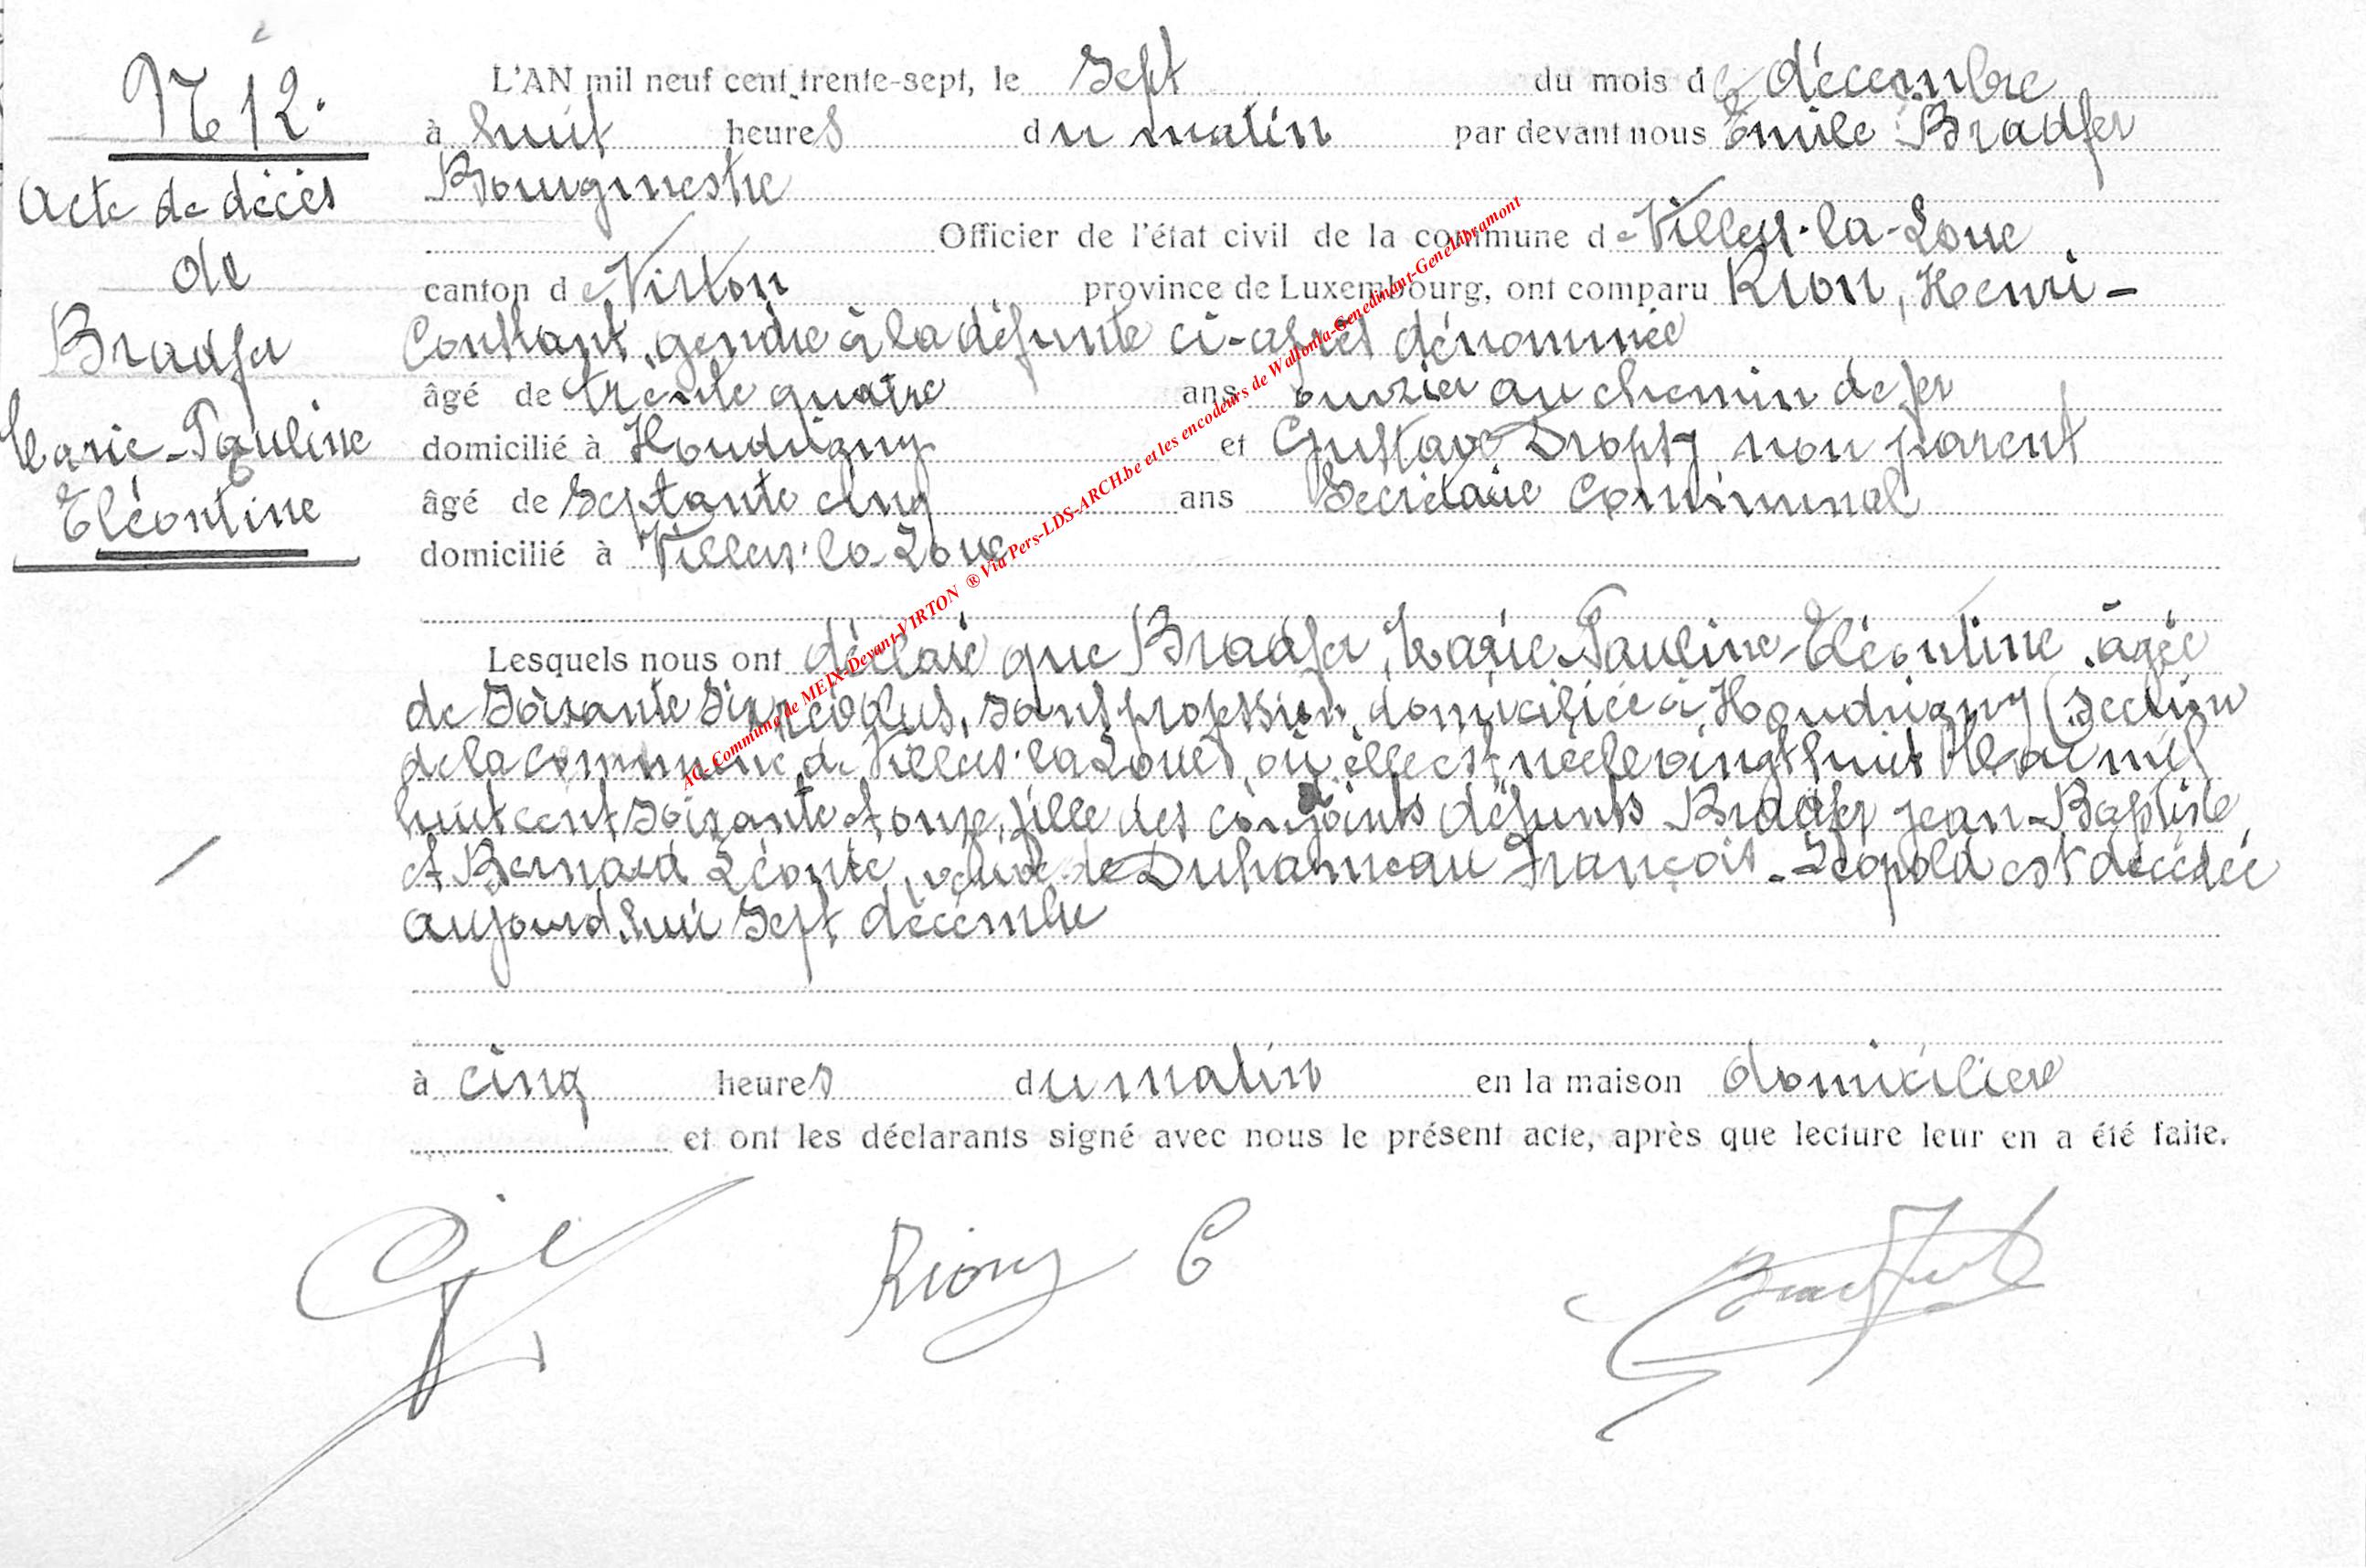 N° 12.
Acte de décès
de
Bradfer
Marie-Pauline
Eléontine
L'AN mil neuf cent trente-sept, le sept du mois de décembre
à huit heures du matin par devant nous Emile Bradfer
Bourgmestre
Officier de l'état civil de la commune de Villers-la-Loue
canton de Virton province de Luxembourg, ont comparu Rion, Henri-
Constant, gendre à la défunte ci-après dénommée
âgé de trente quatre ans ouvrier au chemin de fer
domicilié à Houdrigny et Gustave Dropsy non parent
âgé de septante cinq ans Secrétaire Communal
domicilié à Villers-la-Loue
Lesquels nous ont déclaré que Bradfer, Marie-Pauline-Eléontine, âgée
de soixante six révolus, sans profession, domiciliée à Houdrigny (section
de la commune de Villers-la-Loue), où elle est née le vingt huit Mai mil
huit cent soixante et onze, fille des conjoints défunts Bradfer Jean-Baptiste
et Bernard Léonie, veuve de Duhameau François-Léopold est décédée
aujourd'hui sept décembre
à cinq heures du matin en la maison domicilière
et ont les déclarants signé avec nous le présent acte, après que lecture leur en a été faite.
Rion C
Bradfer
AC-Commune de MEIX-Devant-VIRTON ® Via Pers-LDS-ARCH.be et les encodeurs de Wallonia-Genedinant-Genelibramont